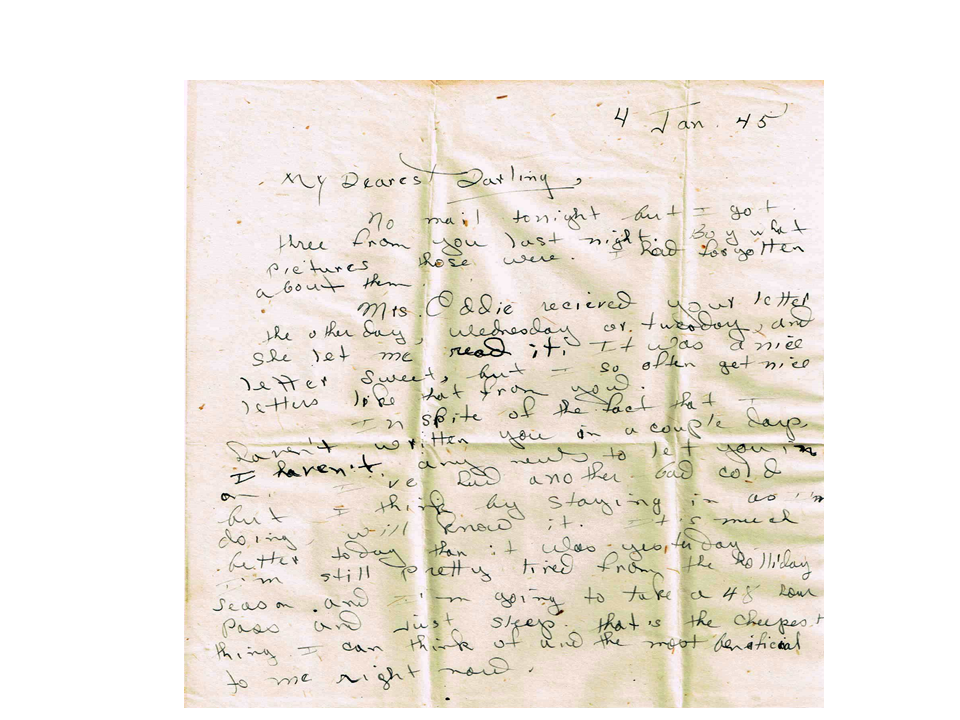 4 Jan. 45
My Dearest Darling,
No mail tonight but I got
three from you last night. Boy what
pictures those were. I had forgotten
about them.
Mrs. Eddie recieved your letter
the other day, wednesday or tuesday, and
she let me read it. It was a nice
letter sweet, but I so often get nice
letters like that from you.
In spite of the fact that I
haven't written you in a couple days
I haven't any news to let you in
on. I've had another bad cold
but I think by staying in as I'm
doing, will know it. It's much
better today than it was yesterday.
I'm still pretty tired from the holliday
season and I'm going to take a 48 hour
pass and just sleep. that is the cheepest
thing I can think of and the most benificial
to me right now.